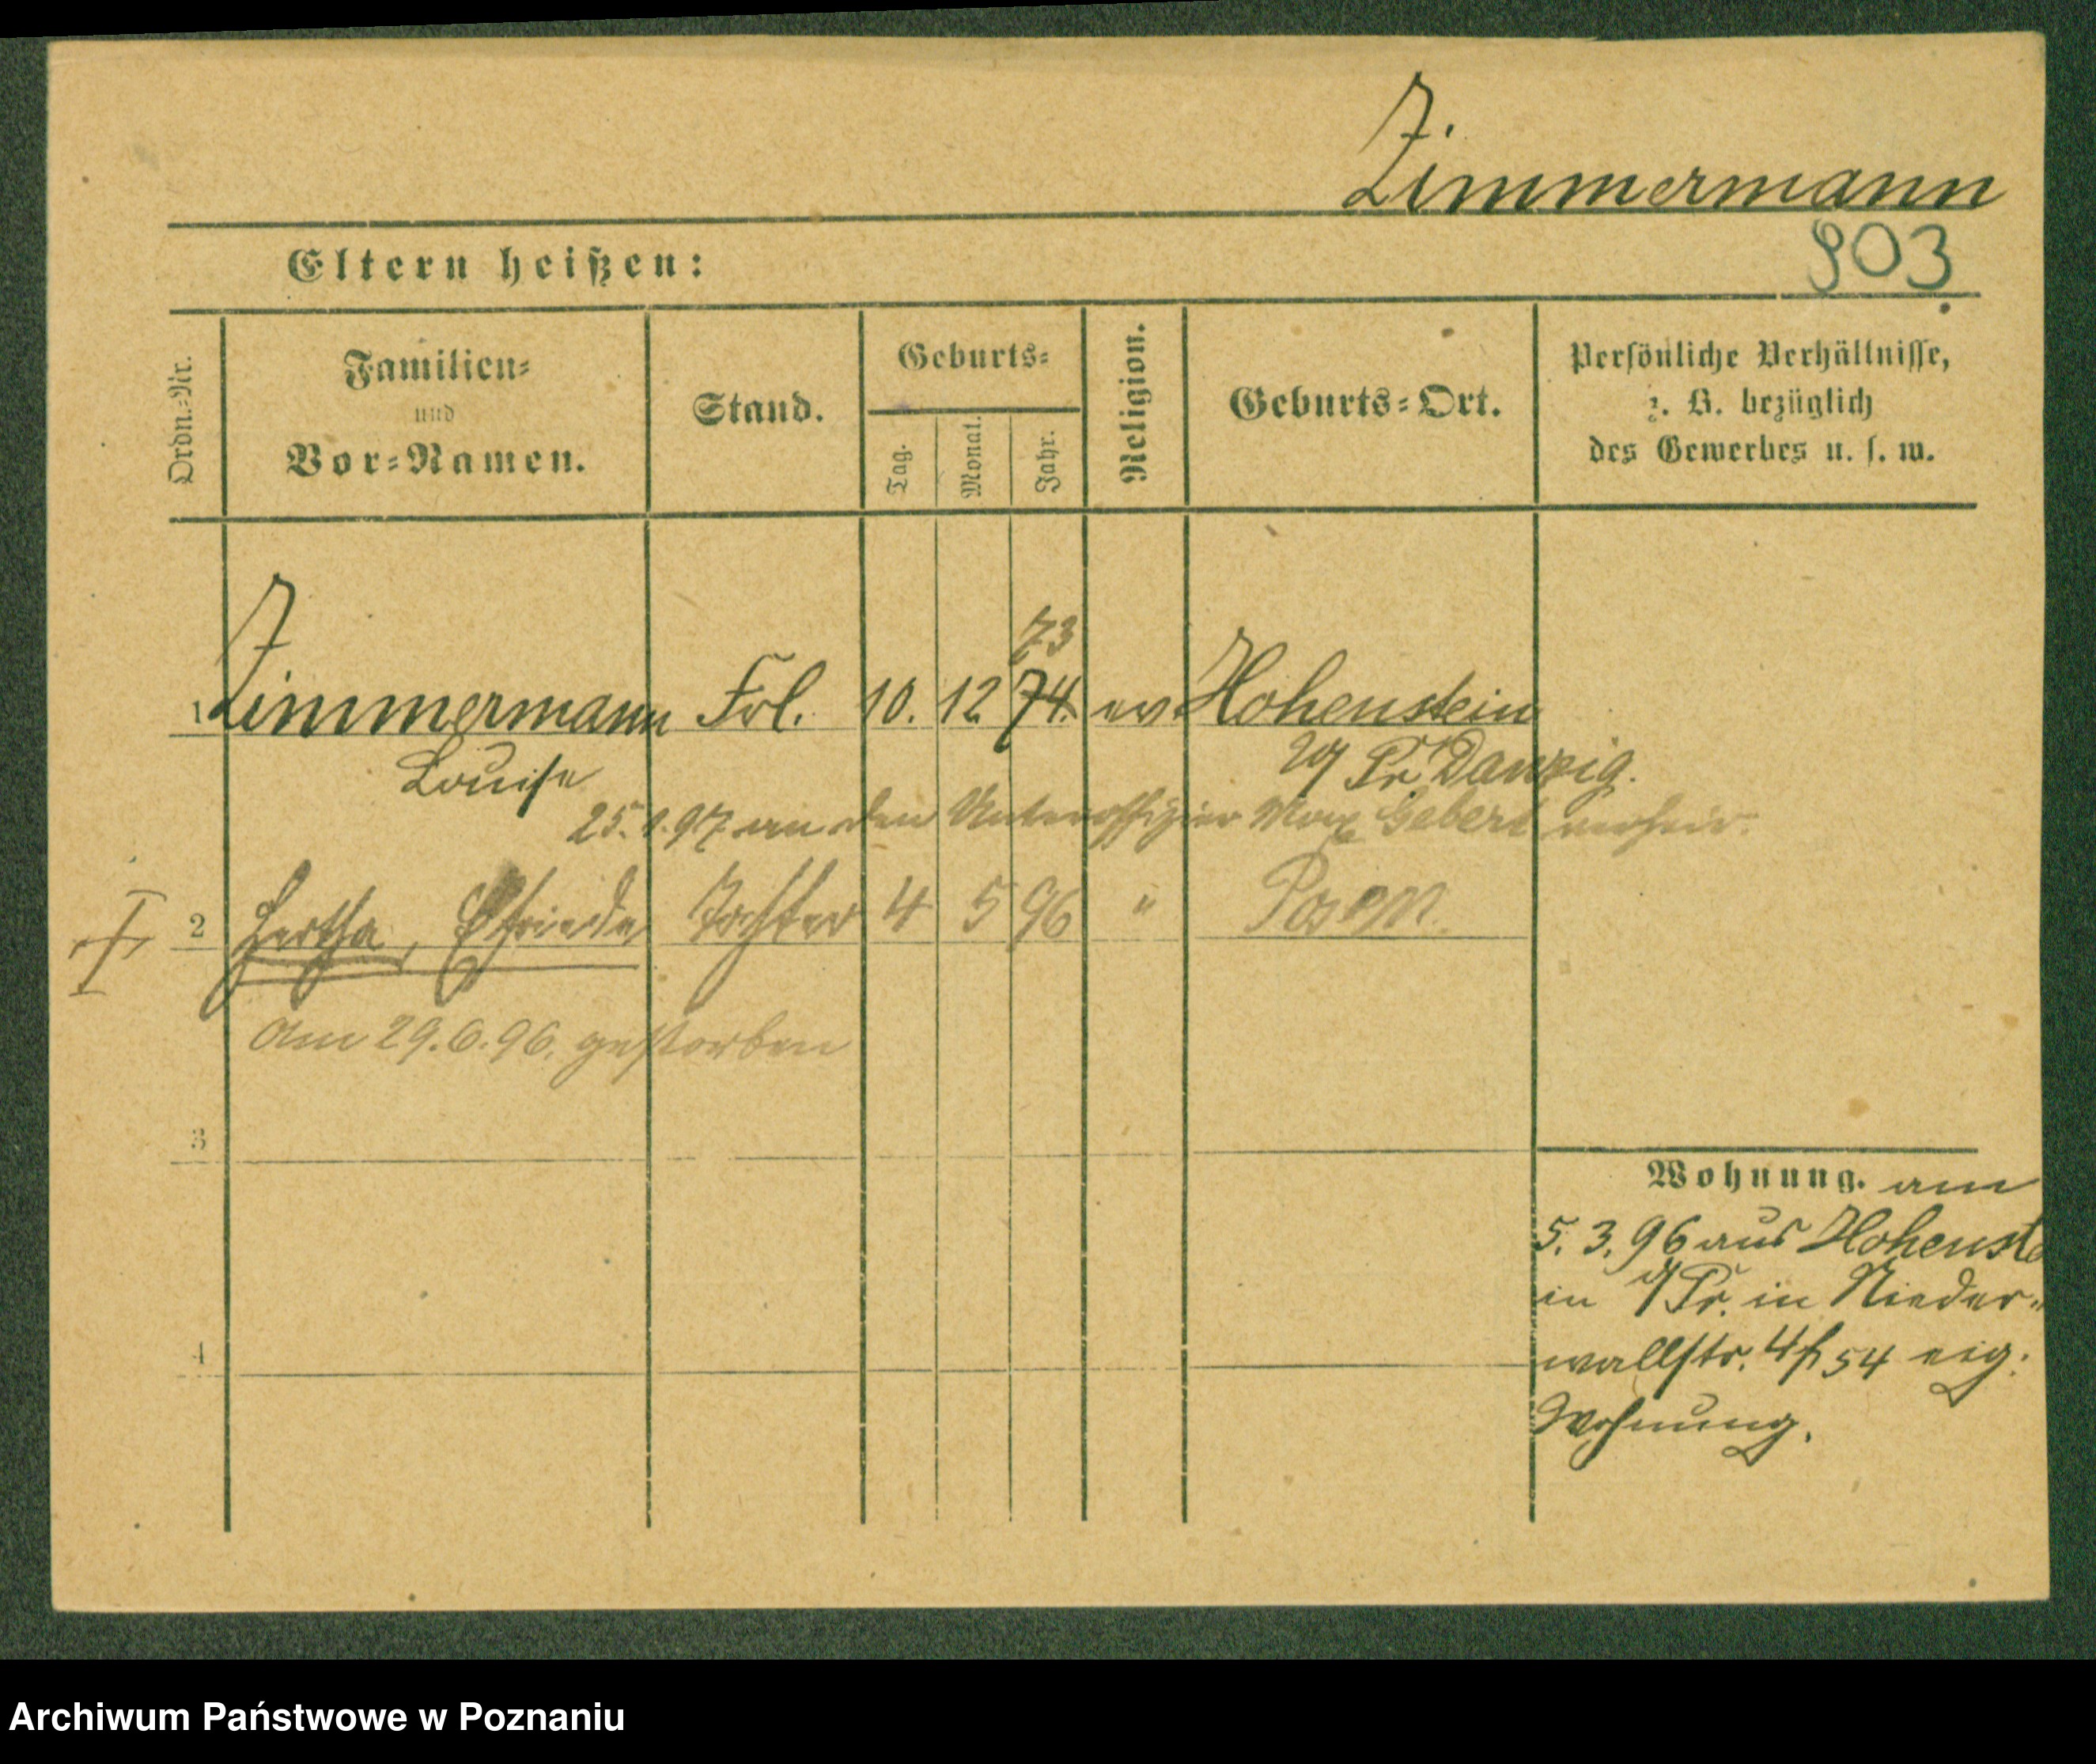 Zimmermann
903
Eltern heißen:
Ordn.-Nr.
Familien-
und
Vor-Namen.
Stand.
Geburts-
Tag.
Monat.
Jahr.
Religion.
Geburts-Ort.
Persönliche Verhältnisse,
z. B. bezüglich
des Gewerbes u. s. w.
73
1 Zimmermann Frl. 10. 12. 74. ev. Hohenstein
Louise Pr. Danzig.
25.1.97 an den Unteroffizier Max Gebert verheir.
2 Hertha, Elfriede Tochter 4 5 96 " Posen.
Am 29.6.96. gestorben
3
Wohnung. am
5. 3. 96 aus Hohenste
in Pr. in Nieder-
4
wallstr. 4 54 eig.
Wohnung.
Archiwum Państwowe w Poznaniu